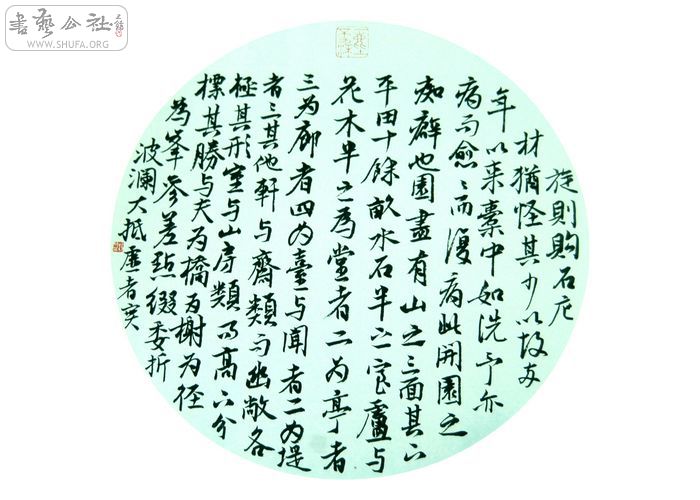 書藝公社
WWW.SHUFA.ORG
旋則購石庀
材猶怪其少以故兩
年以来橐中如洗予亦
病而愈〻而復病此開園之
痴癖也園盡有山之三面其下
平田十餘畝水石半之室廬与
花木半之為堂者二为亭者
三为廊者四为臺与閣者二为堤
者三其他軒与齋類而幽敞各
極其形室与山房類而高下分
標其勝与夫为橋为榭为径
為峯參差點綴委折
波瀾大抵虛者実